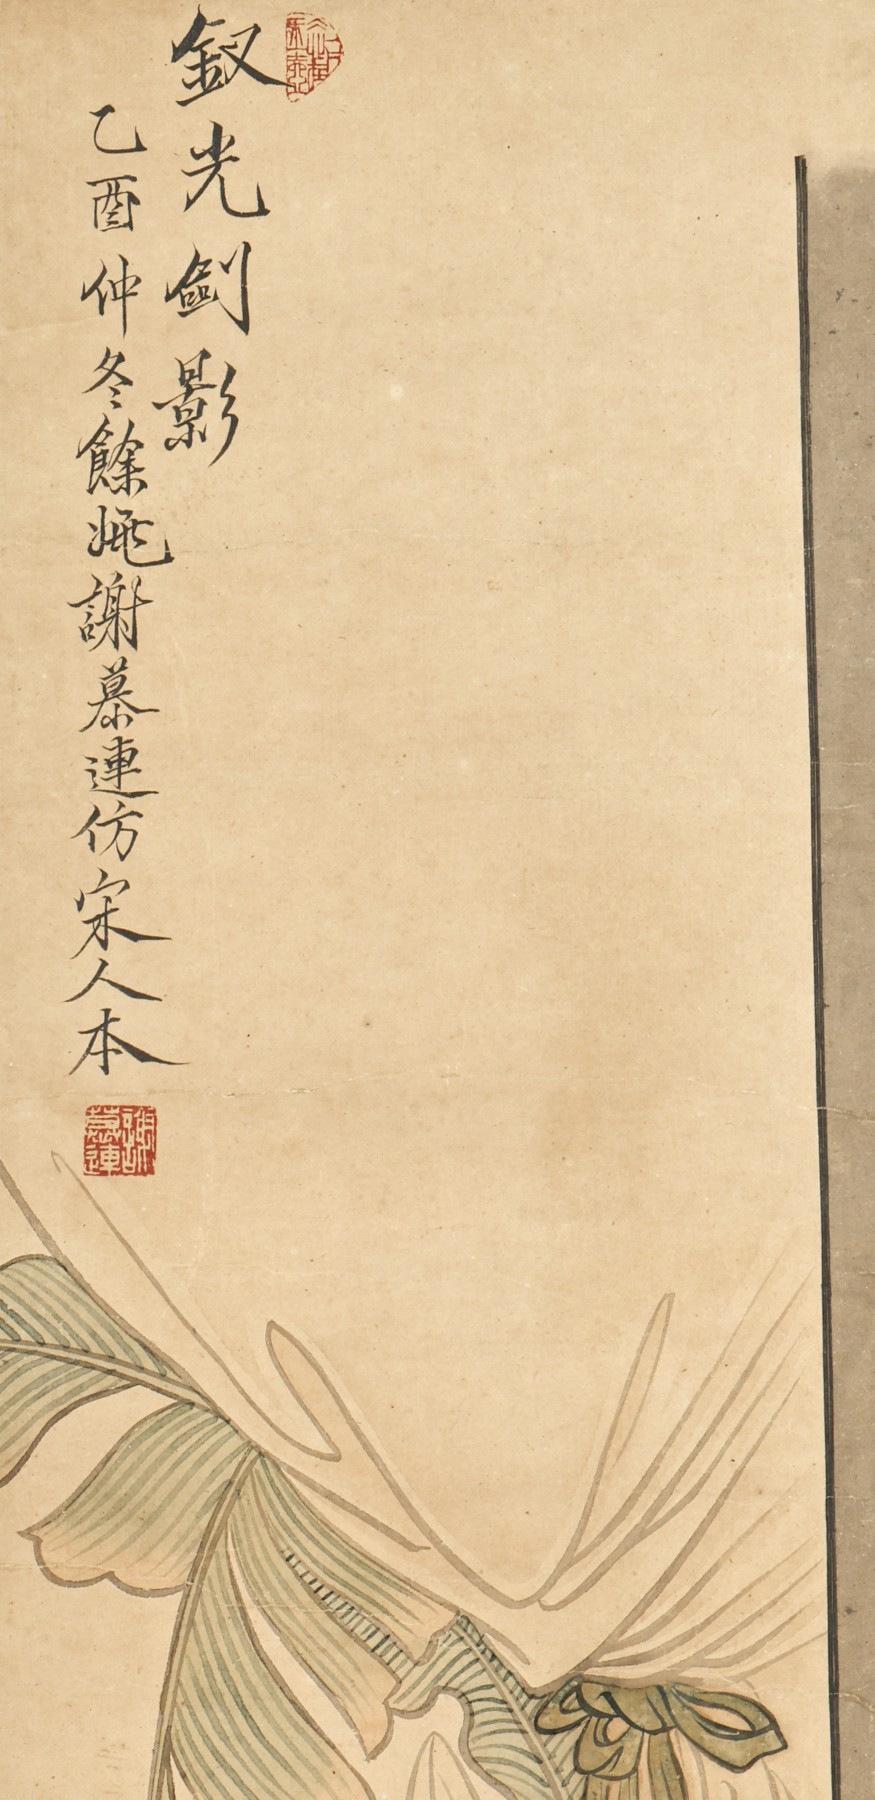 釵光劍影
乙酉仲冬餘姚謝慕連仿宋人本
謝慕連